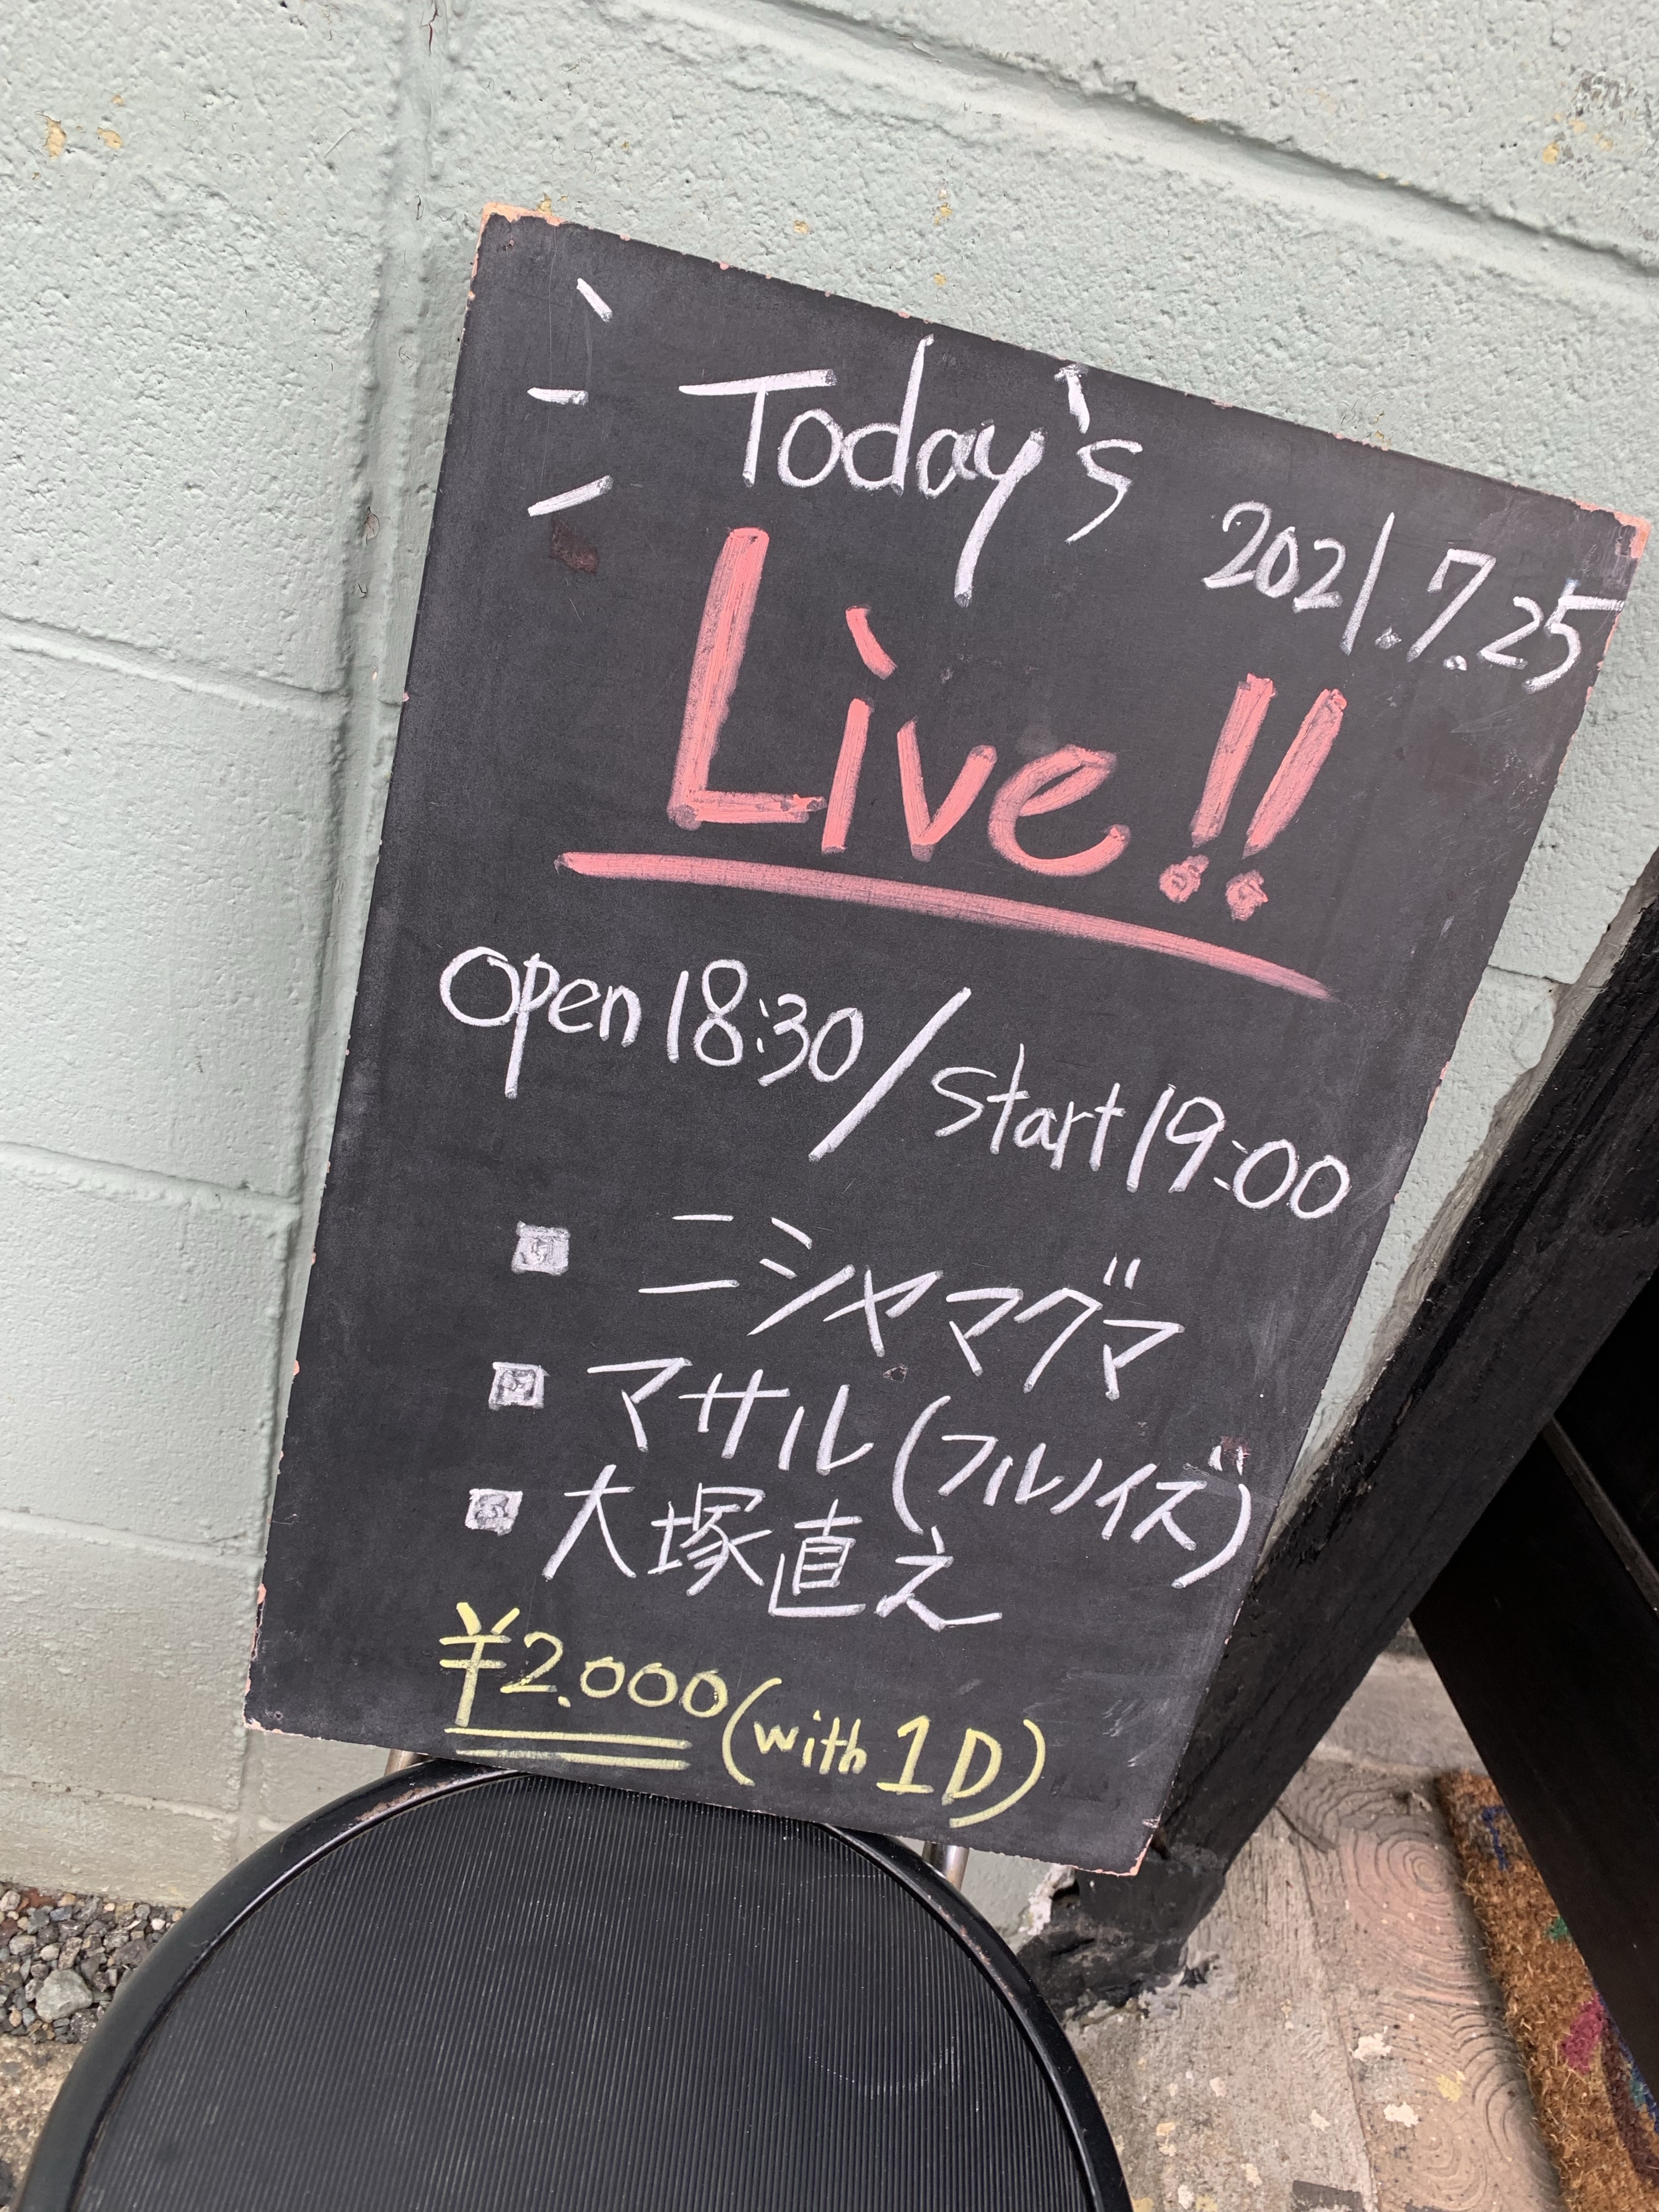 Today's
2021.7.25
Live!!
open 18:30/start 19:00
■ ニシヤマグマ
■ マサル(フルノイズ)
■ 大塚直え
¥2.000(with 1D)